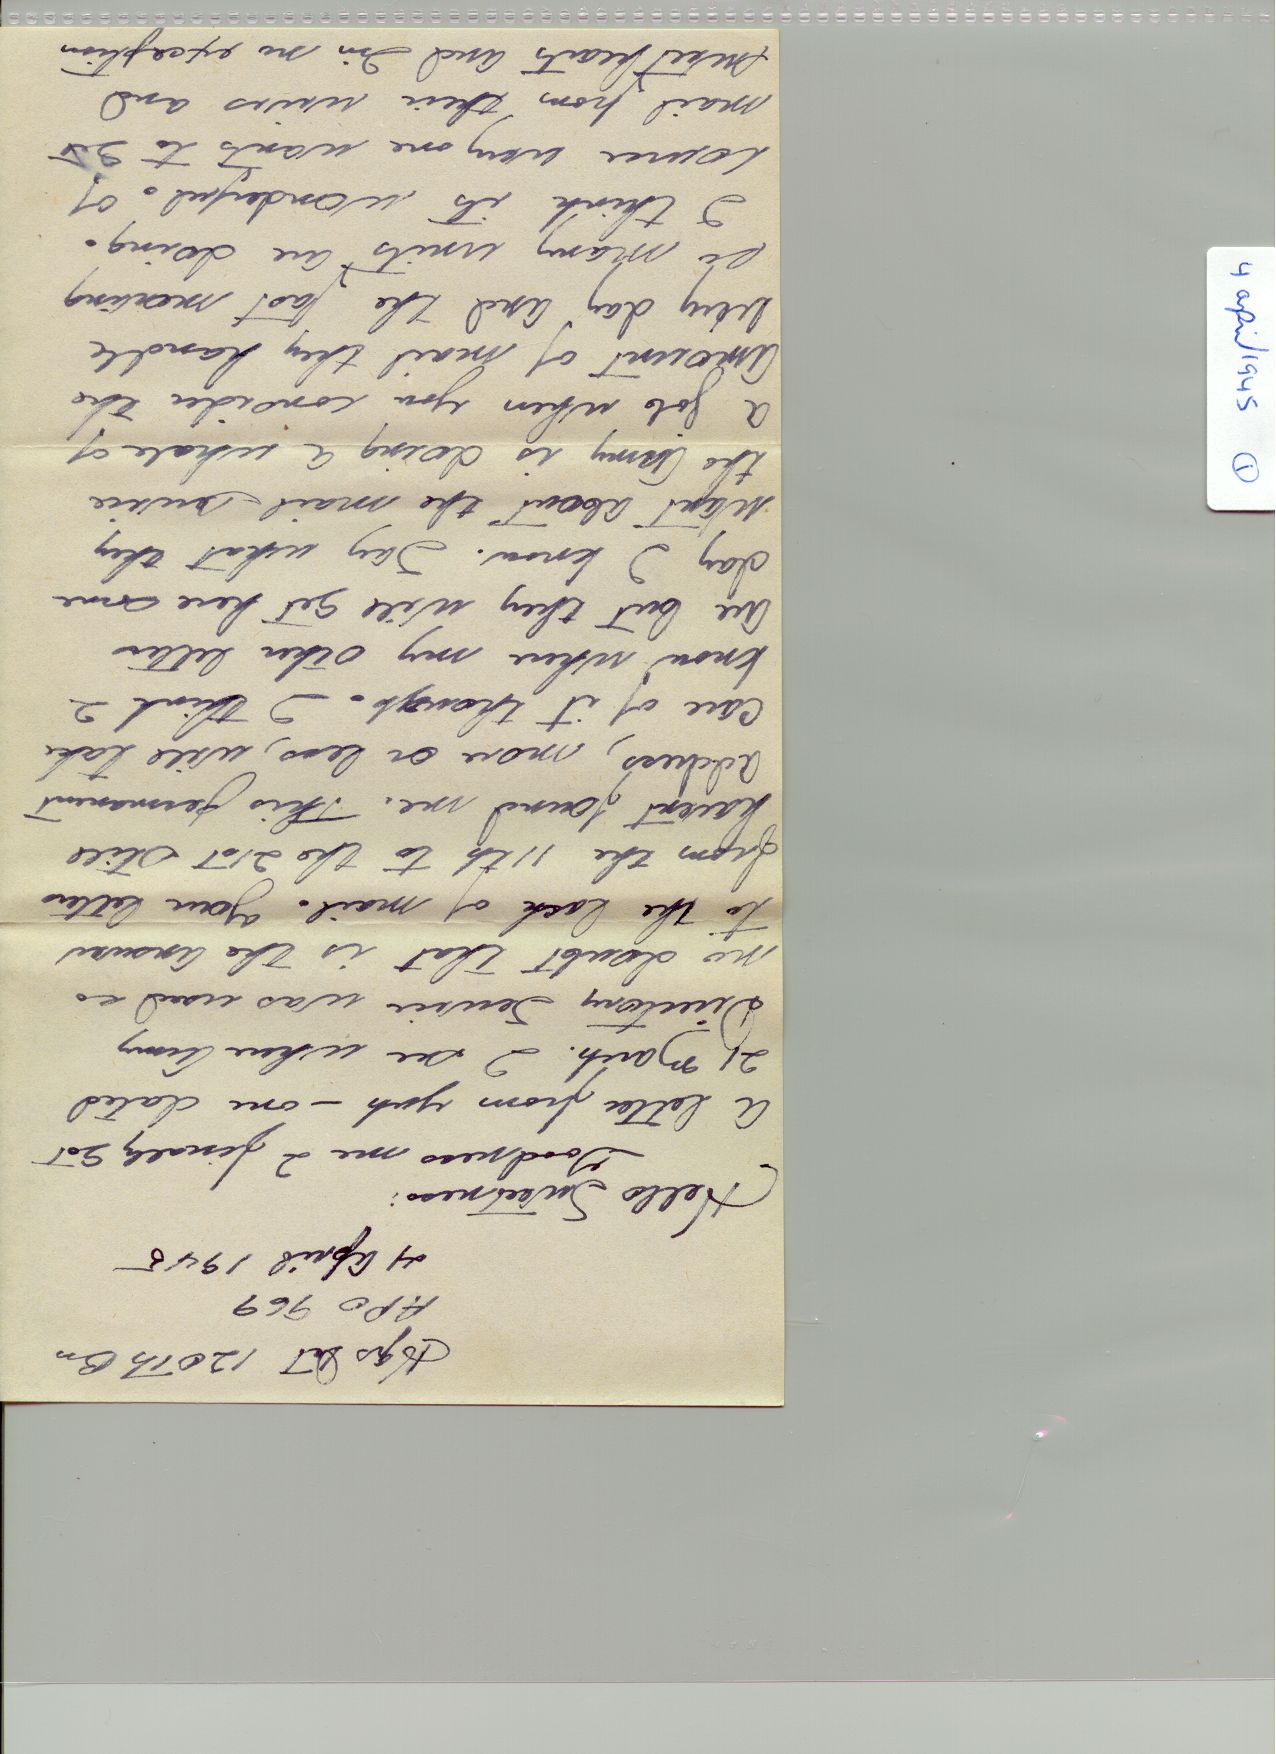 Hqrs Det 120th Bn
APO 969
4 April 1945
Hello Sweetness:
Goodness me I finally got
a letter from you - one dated
21 March. I see where Army
Directory Service was used so
no doubt that is the answer
to the lack of mail. Your letters
from the 11th to the 21st still
havent found me. This permanent
address, more or less, will take
care of it though. I think I
know where my other letters
are but they will get here some
day I know. Say what they
want about the mail service
the Army is doing a whale of
a job when you consider the
amount of mail they handle
every day and the fast moving
so many units are doing.
I think its wonderful. Of
course every one wants to get
mail from their wives and
sweethearts and Im no exception
4 april 1945 1